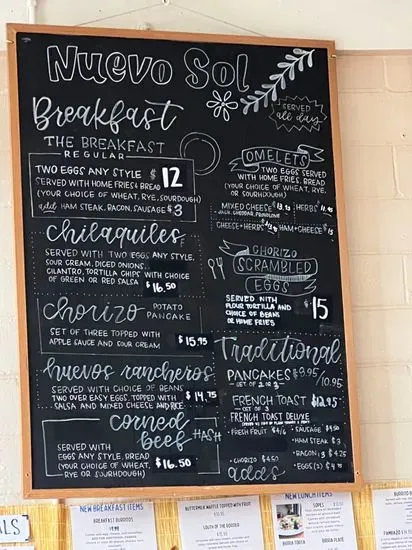 Nuevo Sol
Breakfast
SERVED
all day
THE BREAKFAST
REGULAR
TWO EGGS ANY STYLE $12
SERVED WITH HOME FRIES & BREAD
(YOUR CHOICE OF WHEAT, RYE, SOURDOUGH)
add HAM STEAK, BACON, SAUSAGE $3
chilaquiles
SERVED WITH TWO EGGS ANY STYLE,
SOUR CREAM, DICED ONIONS,
CILANTRO, TORTILLA CHIPS WITH CHOICE
OF GREEN OR RED SALSA $16.50
chorizo POTATO
PANCAKE
SET OF THREE TOPPED WITH
APPLE SAUCE AND SOUR CREAM $15.95
huevos rancheros
SERVED WITH CHOICE OF BEANS
TWO OVER EASY EGGS, TOPPED WITH
SALSA AND MIXED CHEESE AND RICE $14.75
corned
beef HASH
SERVED WITH
EGGS ANY STYLE, BREAD
(YOUR CHOICE OF WHEAT,
RYE OR SOURDOUGH) $16.50
OMELETS
TWO EGGS SERVED
WITH HOME FRIES, BREAD
(YOUR CHOICE OF WHEAT, RYE
OR SOURDOUGH)
MIXED CHEESE
HERBS
JACK, CHEDDAR, PROVOLONE
CHEESE + HERBS
HAM + CHEESE $15
CHORIZO
SCRAMBLED
EGGS
SERVED WITH
FLOUR TORTILLA AND
CHOICE OF BEANS
OR HOME FRIES $15
Traditional
PANCAKES $9.95/10.95
SET OF 2 OR 3
FRENCH TOAST
SET OF 3
FRENCH TOAST DELUXE
FRESH FRUIT $4/6
SAUSAGE $4.50
HAM STEAK $3
BACON $4.25
CHORIZO $4.50
EGGS (2)
adds
NEW BREAKFAST ITEMS
BREAKFAST BURRITOS
BUTTERMILK WAFFLE TOPPED WITH FRUIT
SOUTH OF THE BORDER
NEW LUNCH ITEMS
SOPES
BIRRIA TORTA
BIRRIA PLATE